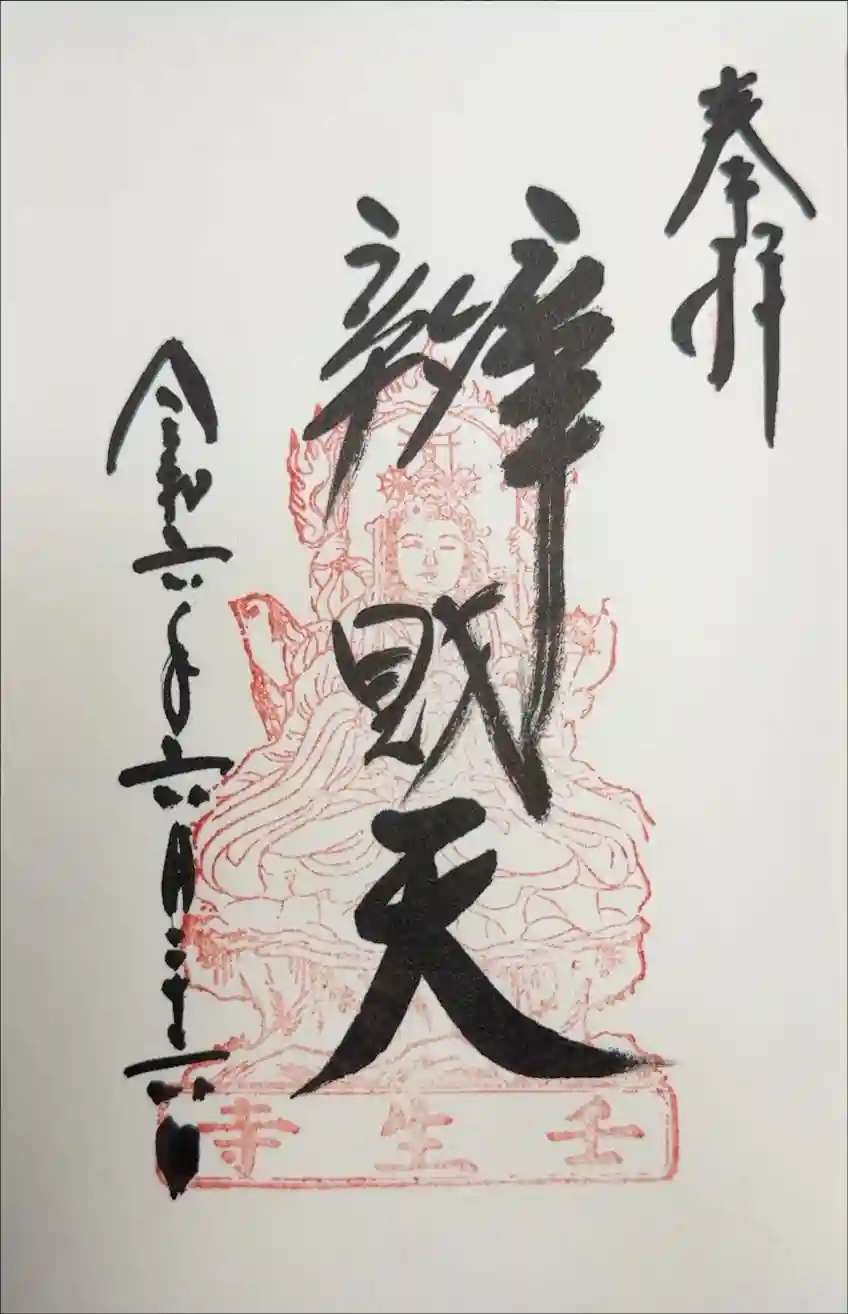 奉拝
辨財天
令和六年六月二十六日
壬生寺